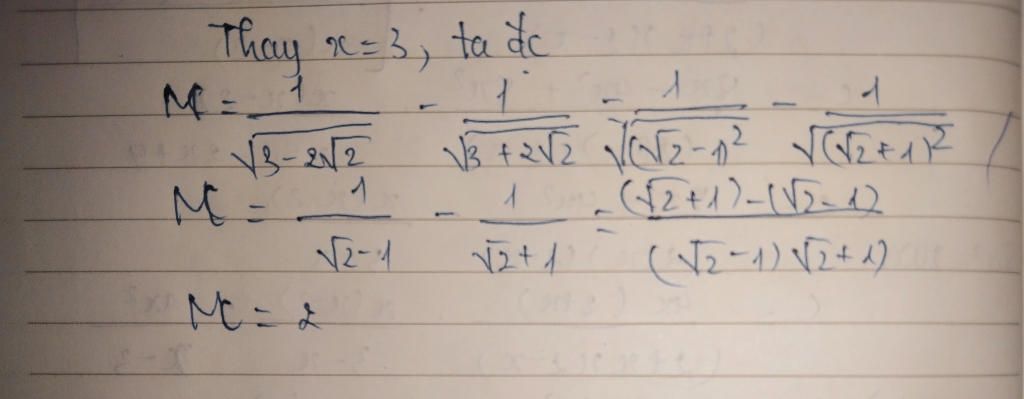 Thay x = 3, ta đc
M = 1/√(3 - 2√2) - 1/√(3 + 2√2) = 1/√((√2 - 1)²) - 1/√((√2 + 1)²)
M = 1/(√2 - 1) - 1/(√2 + 1) = ((√2 + 1) - (√2 - 1))/((√2 - 1) √2 + 1)
M = 2